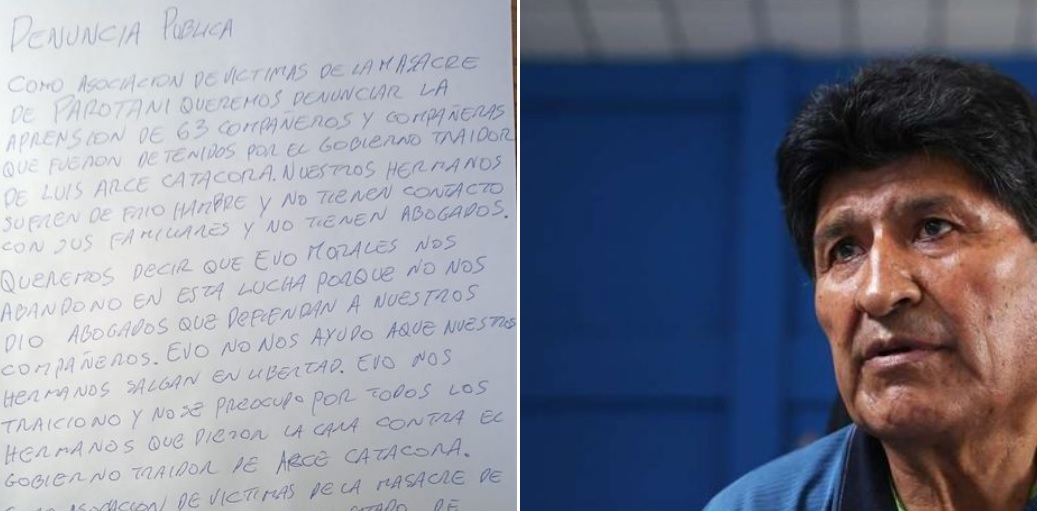 DENUNCIA PUBLICA
COMO ASOCIACION DE VICTIMAS DE LA MASACRE
DE PAROTANI QUEREMOS DENUNCIAR LA
APRENSION DE 63 COMPAÑEROS Y COMPAÑERAS
QUE FUERON DETENIDOS POR EL GOBIERNO TRAIDOR
DE LUIS ARCE CATACORA. NUESTROS HERMANOS
SUFREN DE FRIO HAMBRE Y NO TIENEN CONTACTO
CON SUS FAMILIARES Y NO TIENEN ABOGADOS.
QUEREMOS DECIR QUE EVO MORALES NOS
ABANDONO EN ESTA LUCHA PORQUE NO NOS
DIO ABOGADOS QUE DEFIENDAN A NUESTROS
COMPAÑEROS. EVO NO NOS AYUDO AQUE NUESTROS
HERMANOS SALGAN EN LIBERTAD. EVO NOS
TRAICIONO Y NO SE PREOCUPO POR TODOS LOS
HERMANOS QUE DIERON LA CARA CONTRA EL
GOBIERNO TRAIDOR DE ARCE CATACORA.
ASOCIACION DE VICTIMAS DE LA MASACRE DE
DE